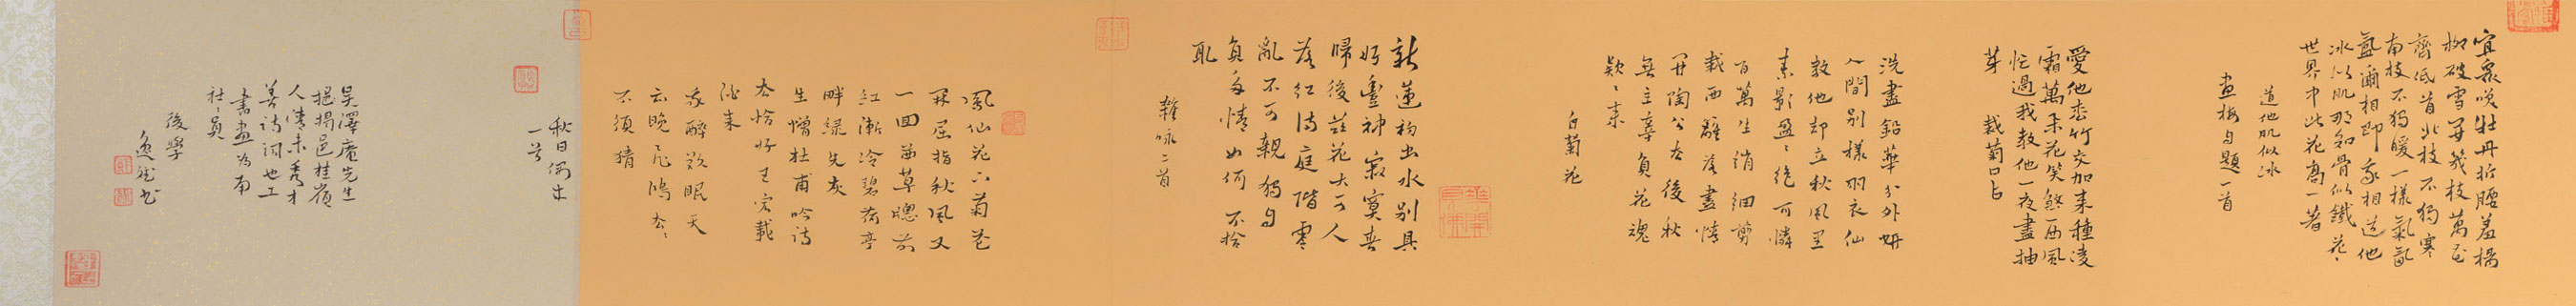 宜衆咲牡丹折腰羞楊
柳破雪開幾枝萬花
齊低首北枝不獨寒
南枝不獨暖一樣氣氤
氳爾相即我相道他
冰似肌那知骨似鐵花〻
世界中此花高一著
道他肌似冰
畫梅自題一首
愛他杰竹交加来種淩
霜萬朵花笑煞西風
忙過我教他一夜盡抽
芽 栽菊口占
洗盡鉛華分外妍
人間别樣羽衣仙
教他却立秋風里
素影盈〻絶可憐
百萬生綃細剪
裁西籬落盡情
開陶公去後秋
無主辜負花魂
欵〻来
白菊花
新蓮初出水别具
好豐神寂寞春
歸後茲花大可人
落紅满庭階零
亂不可親獨自
負多情如何不拾
取
雜咏二首
鳳仙花下菊花
開屈指秋風又
一回茜草牕前
紅漸冷碧荷亭
畔緑先灰
生憎杜甫吟詩
去恰好王宏載
酒来
我醉欲眠天
云晚飛鴻去〻
不須猜
秋日偶出
一首
吴澤庵先生
挹揭邑桂嶺
人清末秀才
善詩詞也工
書畫为南
社〻員
後學
逸斌书